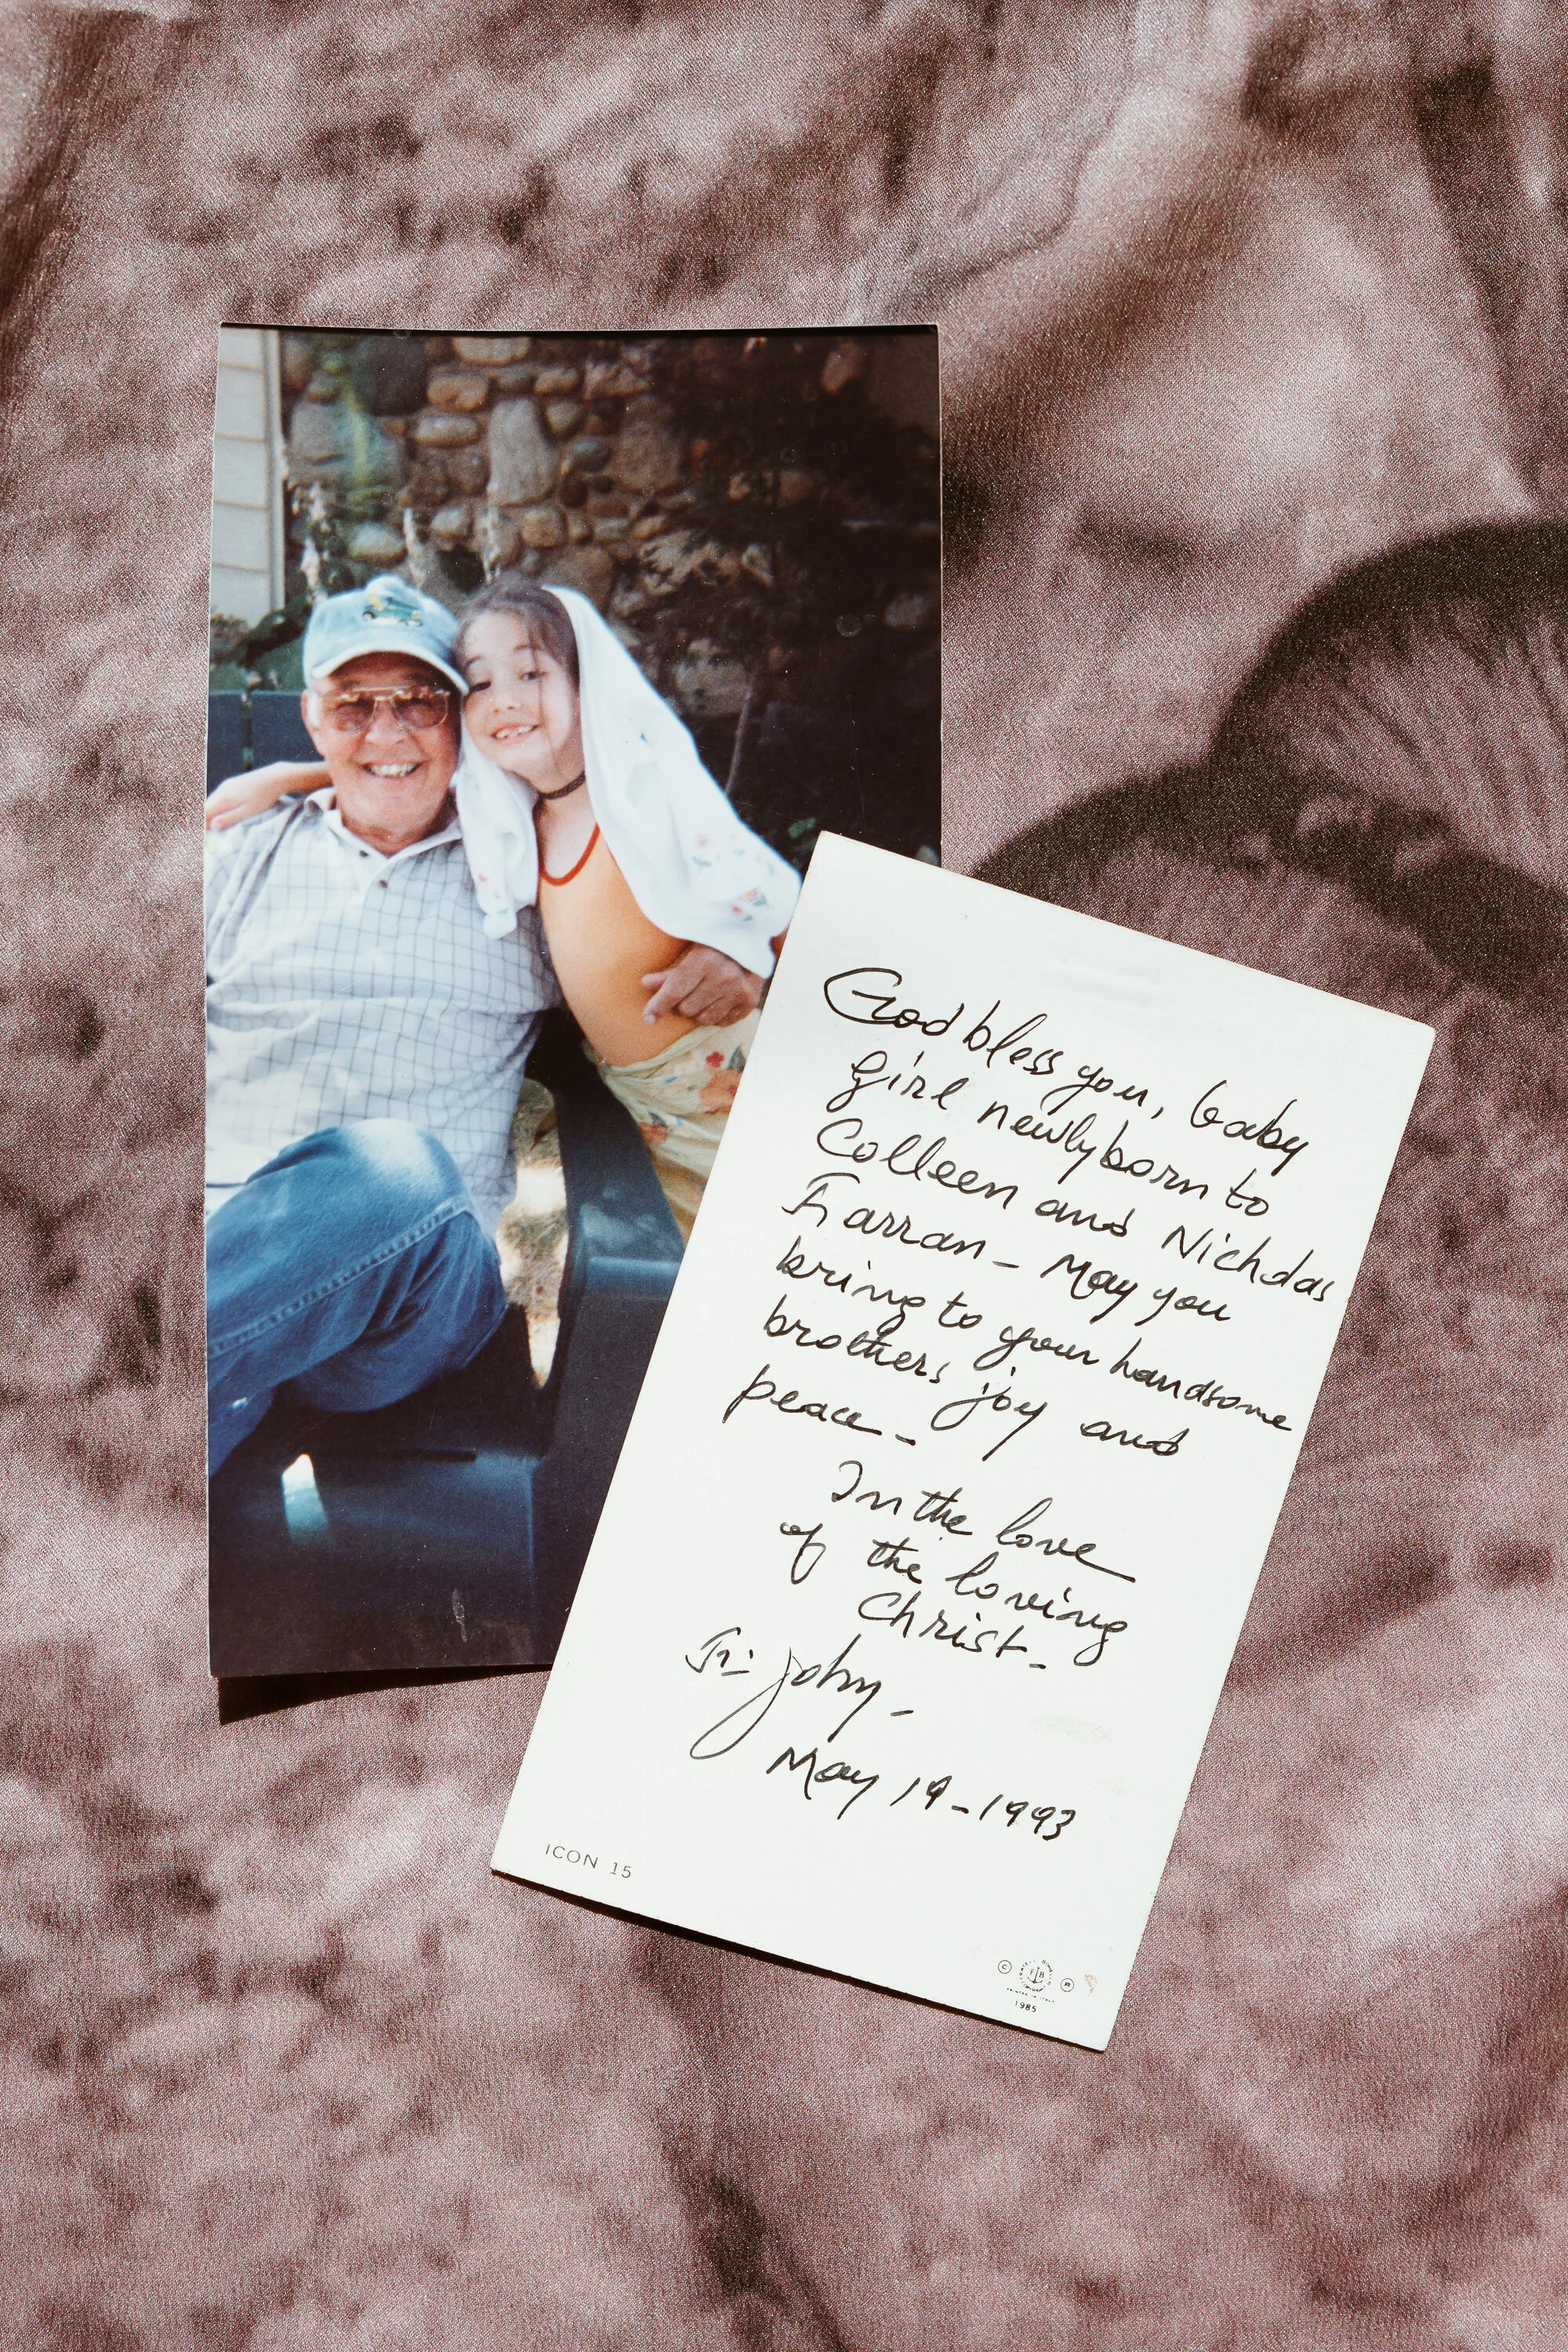 God bless you, baby
girl newlyborn to
Colleen and Nicholas
Farran - May you
bring to your handsome
brothers joy and
peace -
In the love
of the loving
Christ -
Fr. John -
May 19-1993
ICON 15
© FB ®
PRINTED IN ITALY
1985